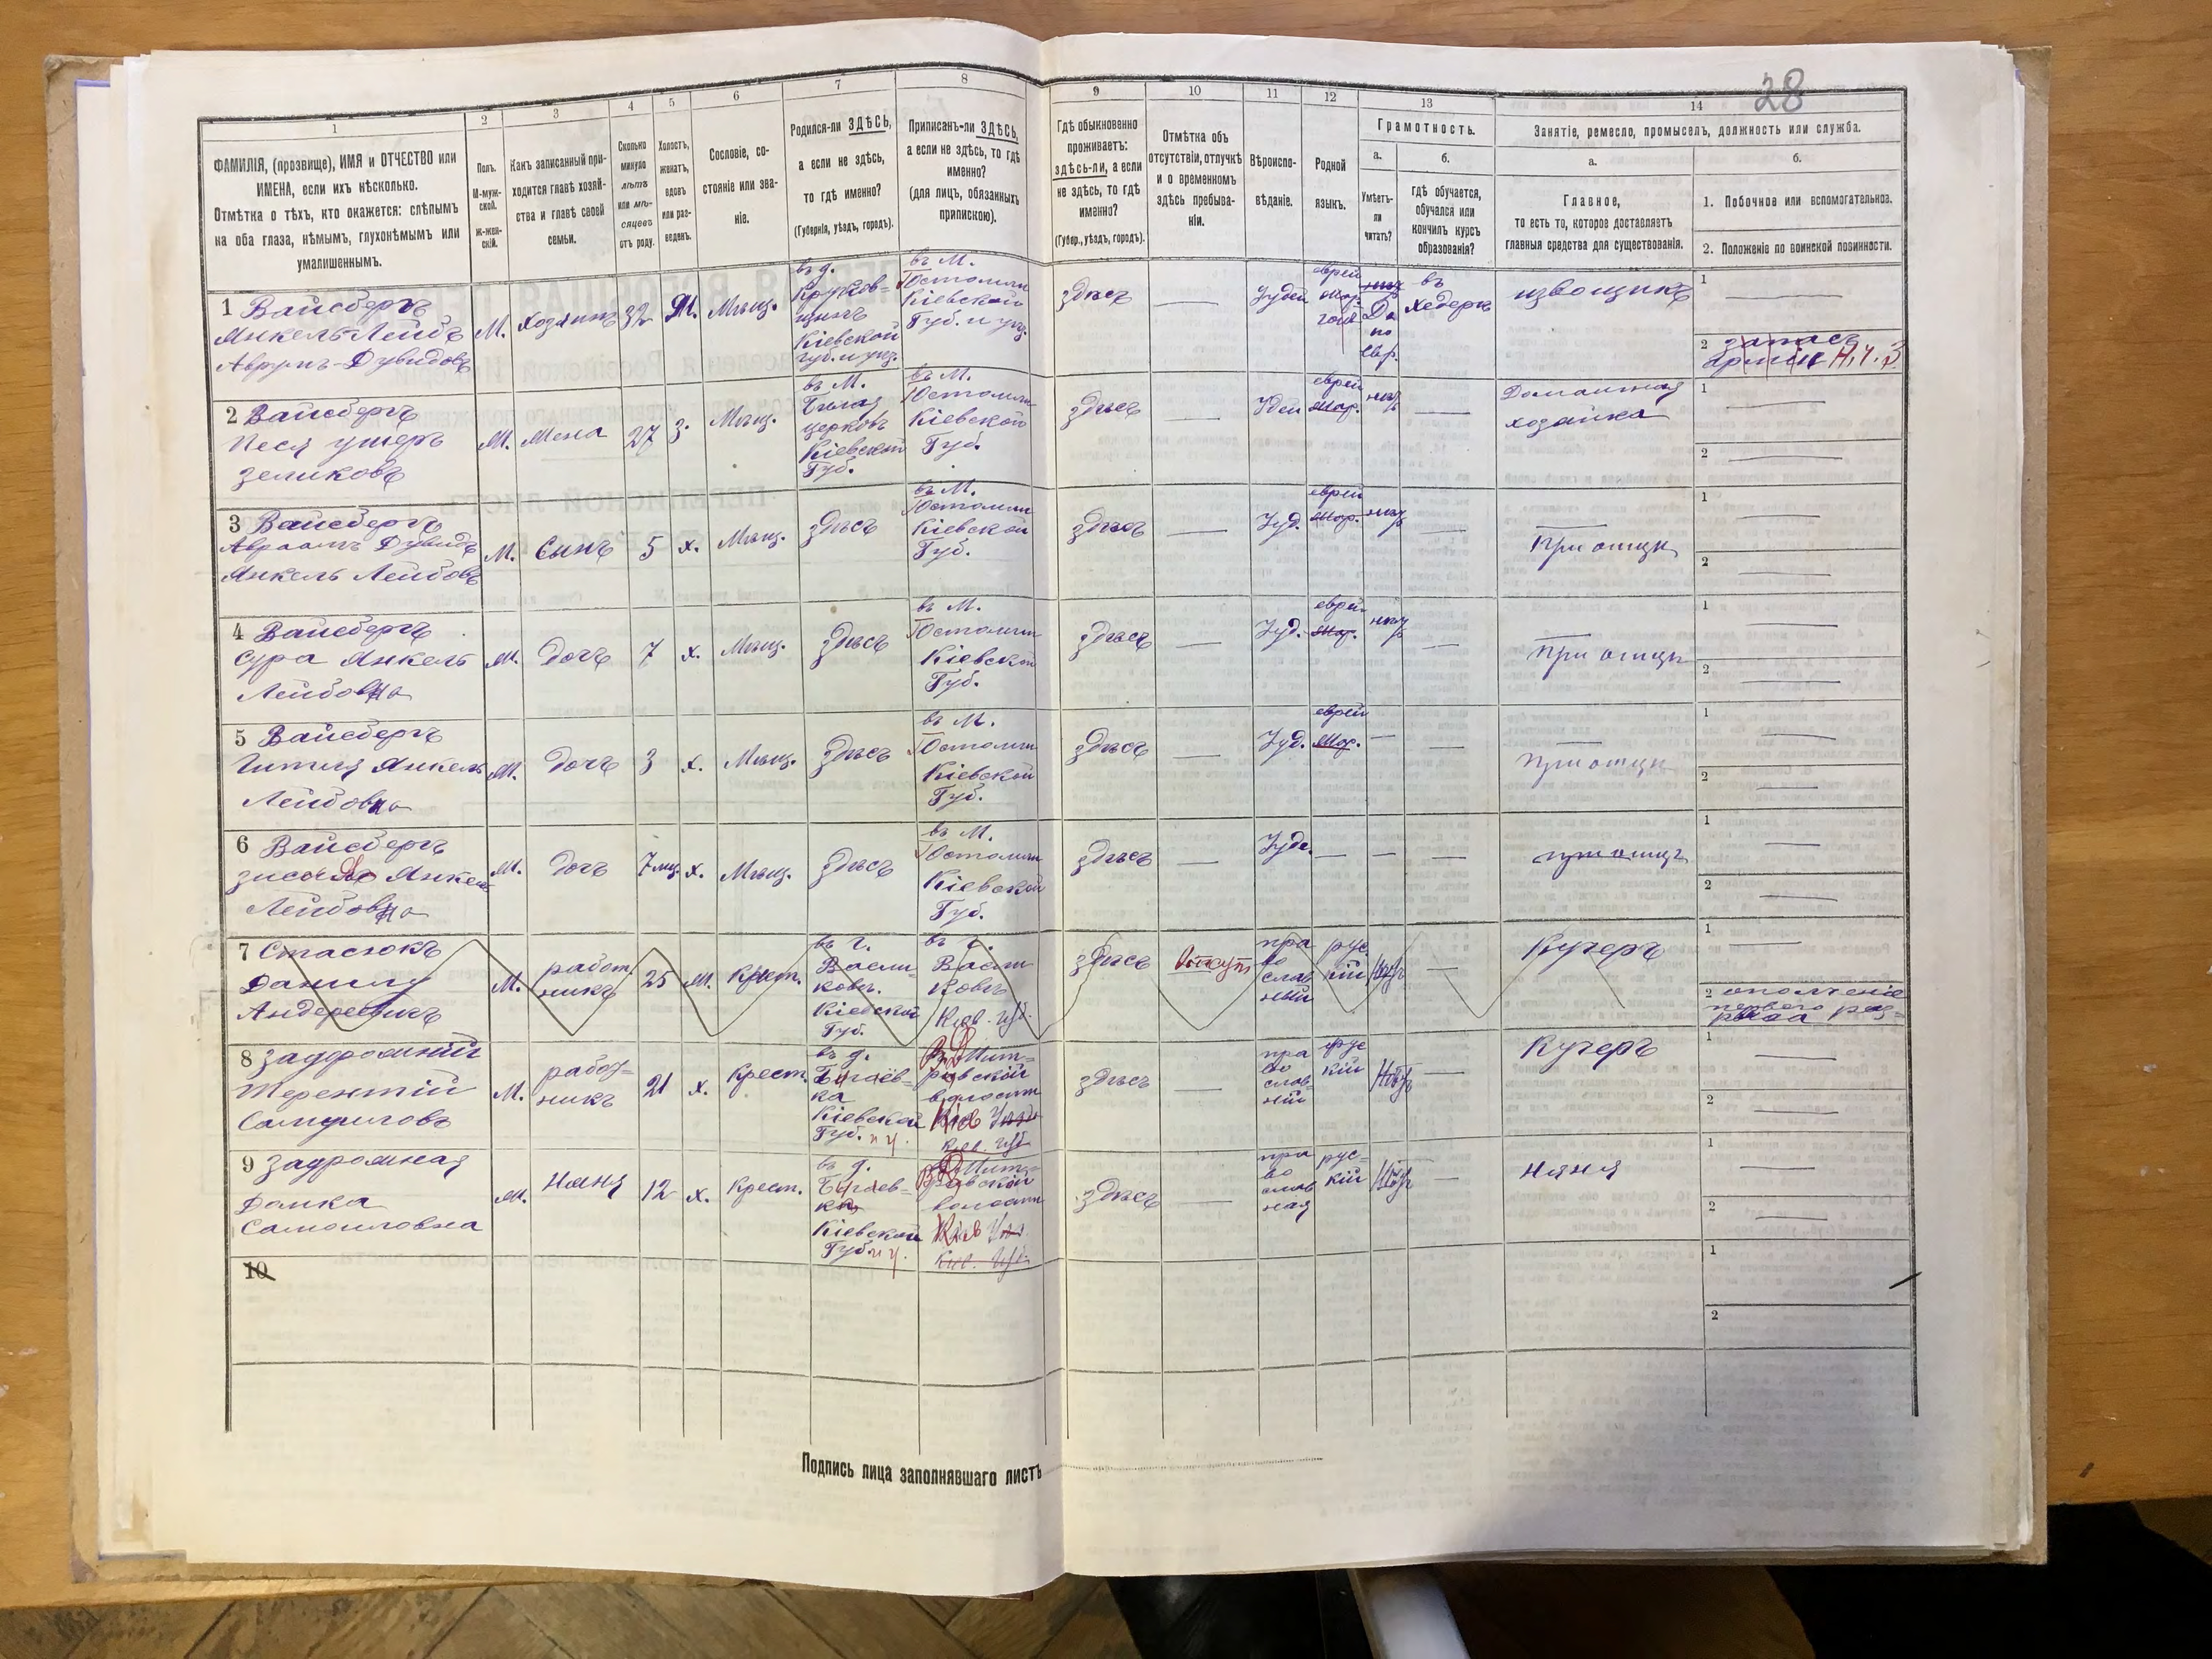 28
1
2
3
4
5
6
7
8
9
10
11
12
13
14
ФАМИЛІЯ, (прозвище), ИМЯ и ОТЧЕСТВО или
ИМЕНА, если ихъ нѣсколько.
Отмѣтка о тѣхъ, кто окажется: слѣпымъ
на оба глаза, нѣмымъ, глухонѣмымъ или
умалишеннымъ.
Полъ.
М-муж-
ской.
Ж-жен-
скій.
Какъ записанный при-
ходится главѣ хозяй-
ства и главѣ своей
семьи.
Сколько
минуло
лѣтъ
или мѣ-
сяцевъ
отъ роду.
Холостъ,
женатъ,
вдовъ
или раз-
веденъ.
Сословіе, со-
стояніе или зва-
ніе.
Родился-ли ЗДѢСЬ,
а если не здѣсь,
то гдѣ именно?
(Губернія, уѣздъ, городъ).
Приписанъ-ли ЗДѢСЬ,
а если не здѣсь, то гдѣ
именно?
(для лицъ, обязанныхъ
припискою).
Гдѣ обыкновенно
проживаетъ:
здѣсь-ли, а если
не здѣсь, то гдѣ
именно?
(Губер., уѣздъ, городъ).
Отмѣтка объ
отсутствіи, отлучкѣ
и о временномъ
здѣсь пребыва-
ніи.
Вѣроиспо-
вѣданіе.
Родной
языкъ.
Грамотность.
а.
Умѣетъ-
ли
читать?
б.
гдѣ обучается,
обучался или
кончилъ курсъ
образованія?
Занятіе, ремесло, промыселъ, должность или служба.
а.
Главное,
то есть то, которое доставляетъ
главныя средства для существованія.
б.
1. Побочное или вспомогательное.
2. Положеніе по воинской повинности.
1 Вайсбергъ
Янкель Лейбъ
Аврумъ-Дувидовъ
М.
хозяинъ
32
Мѣщ.
въ д.
Кіевской
губ. и уѣз.
въ М.
Кіевской
Губ. и уѣз.
здѣсь
Іудей
еврей
Да
по
евр.
въ
хедерѣ
извощикъ
1
2 запасъ
арміи
2 Вайсбергъ
Песя ушеръ
зеликовъ
М.
Жена
27
з.
Мѣщ.
въ М.
Бѣлая
церковь
Кіевской
Губ.
въ М.
Кіевской
Губ.
здѣсь
еврей
Домашняя
хозяйка
1
2
3 Вайсбергъ
Авраамъ Дувидъ
Янкель Лейбовъ
М.
Сынъ
5
х.
Мѣщ.
здѣсь
въ М.
Кіевской
Губ.
здѣсь
Іуд.
еврей
При отцѣ
1
2
4 Вайсбергъ
Сура Янкель
Лейбовна
М.
Дочь
7
х.
Мѣщ.
здѣсь
въ М.
Кіевской
Губ.
здѣсь
Іуд.
еврей
При отцѣ
1
2
5 Вайсбергъ
Гитля Янкель
Лейбовна
М.
Дочь
3
х.
Мѣщ.
здѣсь
въ М.
Кіевской
Губ.
здѣсь
Іуд.
еврей
При отцѣ
1
2
6 Вайсбергъ
Янкель
Лейбовна
М.
Дочь
7 мѣц.
х.
Мѣщ.
здѣсь
въ М.
Кіевской
Губ.
здѣсь
Іуде.
при отцѣ
1
2
7 Стасюкъ
Данилу
М.
работ
никъ
25
М.
Крест.
въ г.
Васи-
ковъ
Кіевской
Губ.
въ г.
Васи
ковъ
Кіев. губ.
здѣсь
пра
во
слав
ный
рус
кій
Кучеръ
1
2 ополченія
перваго раз-
ряда
8
Терентій
М.
работ-
никъ
21
х.
Крест.
въ д.
Кіевской
Губ. и у.
волости
Кіев. губ.
здѣсь
пра
во
слав-
ній
рус
кій
Кучеръ
1
2
9
Домка
Самоиловна
М.
няня
12
х.
Крест.
въ д.
Кіевской
Губ. и у.
волости
Кіев. губ.
здѣсь
пра
во
слав
ная
рус-
кій
няня
1
2
10
1
2
Подпись лица заполнявшаго листъ